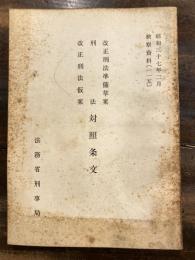 昭和三十七年二月
検察資料〔一一五〕
改正刑法準備草案
刑法
改正刑法仮案
対照条文
法務省刑事局